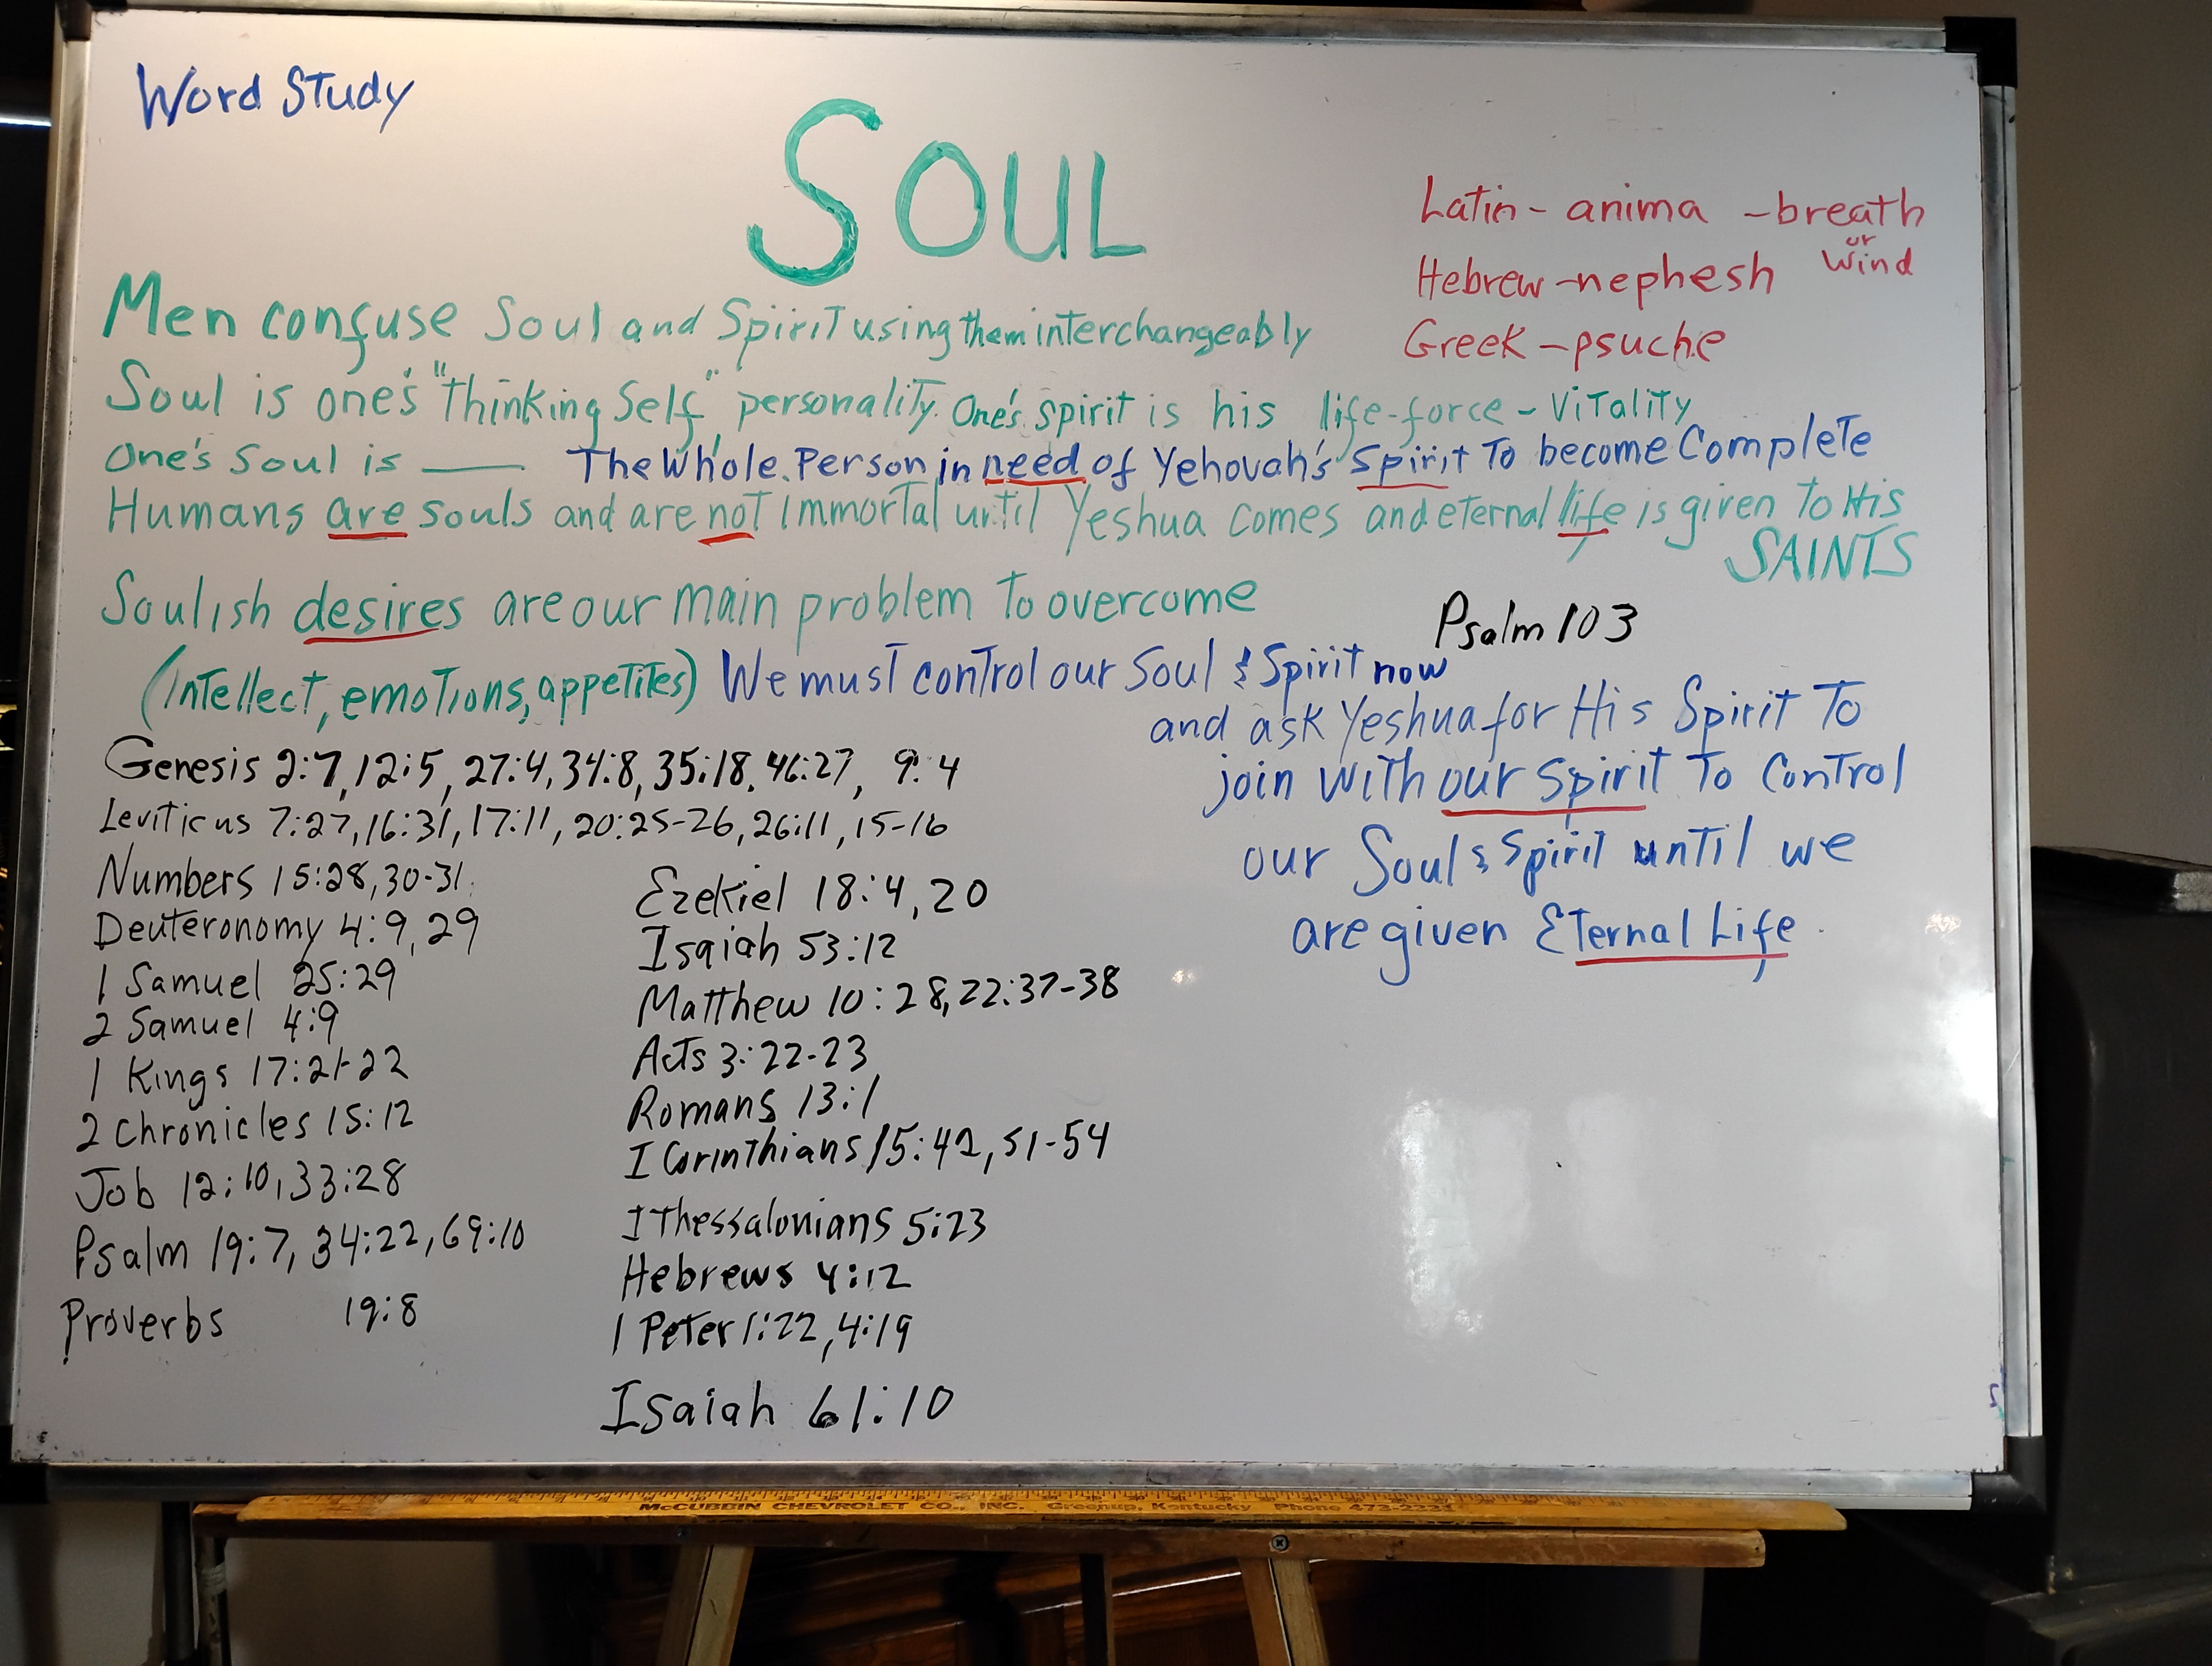 Word Study
SOUL
Latin - anima - breath
or
wind
Hebrew - nephesh
Greek - psuche
Men confuse Soul and Spirit using them interchangeably
Soul is one's "Thinking Self", personality. One's spirit is his life-force - Vitality
One's Soul is ___ The Whole Person in need of Yehovah's Spirit To become Complete
Humans are souls and are not immortal until Yeshua comes and eternal life is given To His
SAINTS
Soulish desires are our main problem To overcome
Psalm 103
(Intellect, emotions, appetites) We must control our Soul & Spirit now
and ask Yeshua for His Spirit To
join with our Spirit To Control
our Soul & Spirit until we
are given Eternal Life
Genesis 2:7, 12:5, 27:4, 34:8, 35:18, 46:27, 9:4
Leviticus 7:27, 16:31, 17:11, 20:25-26, 26:11, 15-16
Numbers 15:28, 30-31
Deuteronomy 4:9, 29
1 Samuel 25:29
2 Samuel 4:9
1 Kings 17:21-22
2 Chronicles 15:12
Job 12:10, 33:28
Psalm 19:7, 34:22, 69:10
Proverbs 19:8
Ezekiel 18:4, 20
Isaiah 53:12
Matthew 10:28, 22:37-38
Acts 3:22-23
Romans 13:1
I Corinthians 15:42, 51-54
I Thessalonians 5:23
Hebrews 4:12
1 Peter 1:22, 4:19
Isaiah 61:10
McCUBBIN CHEVROLET CO., INC. Greenup, Kentucky Phone